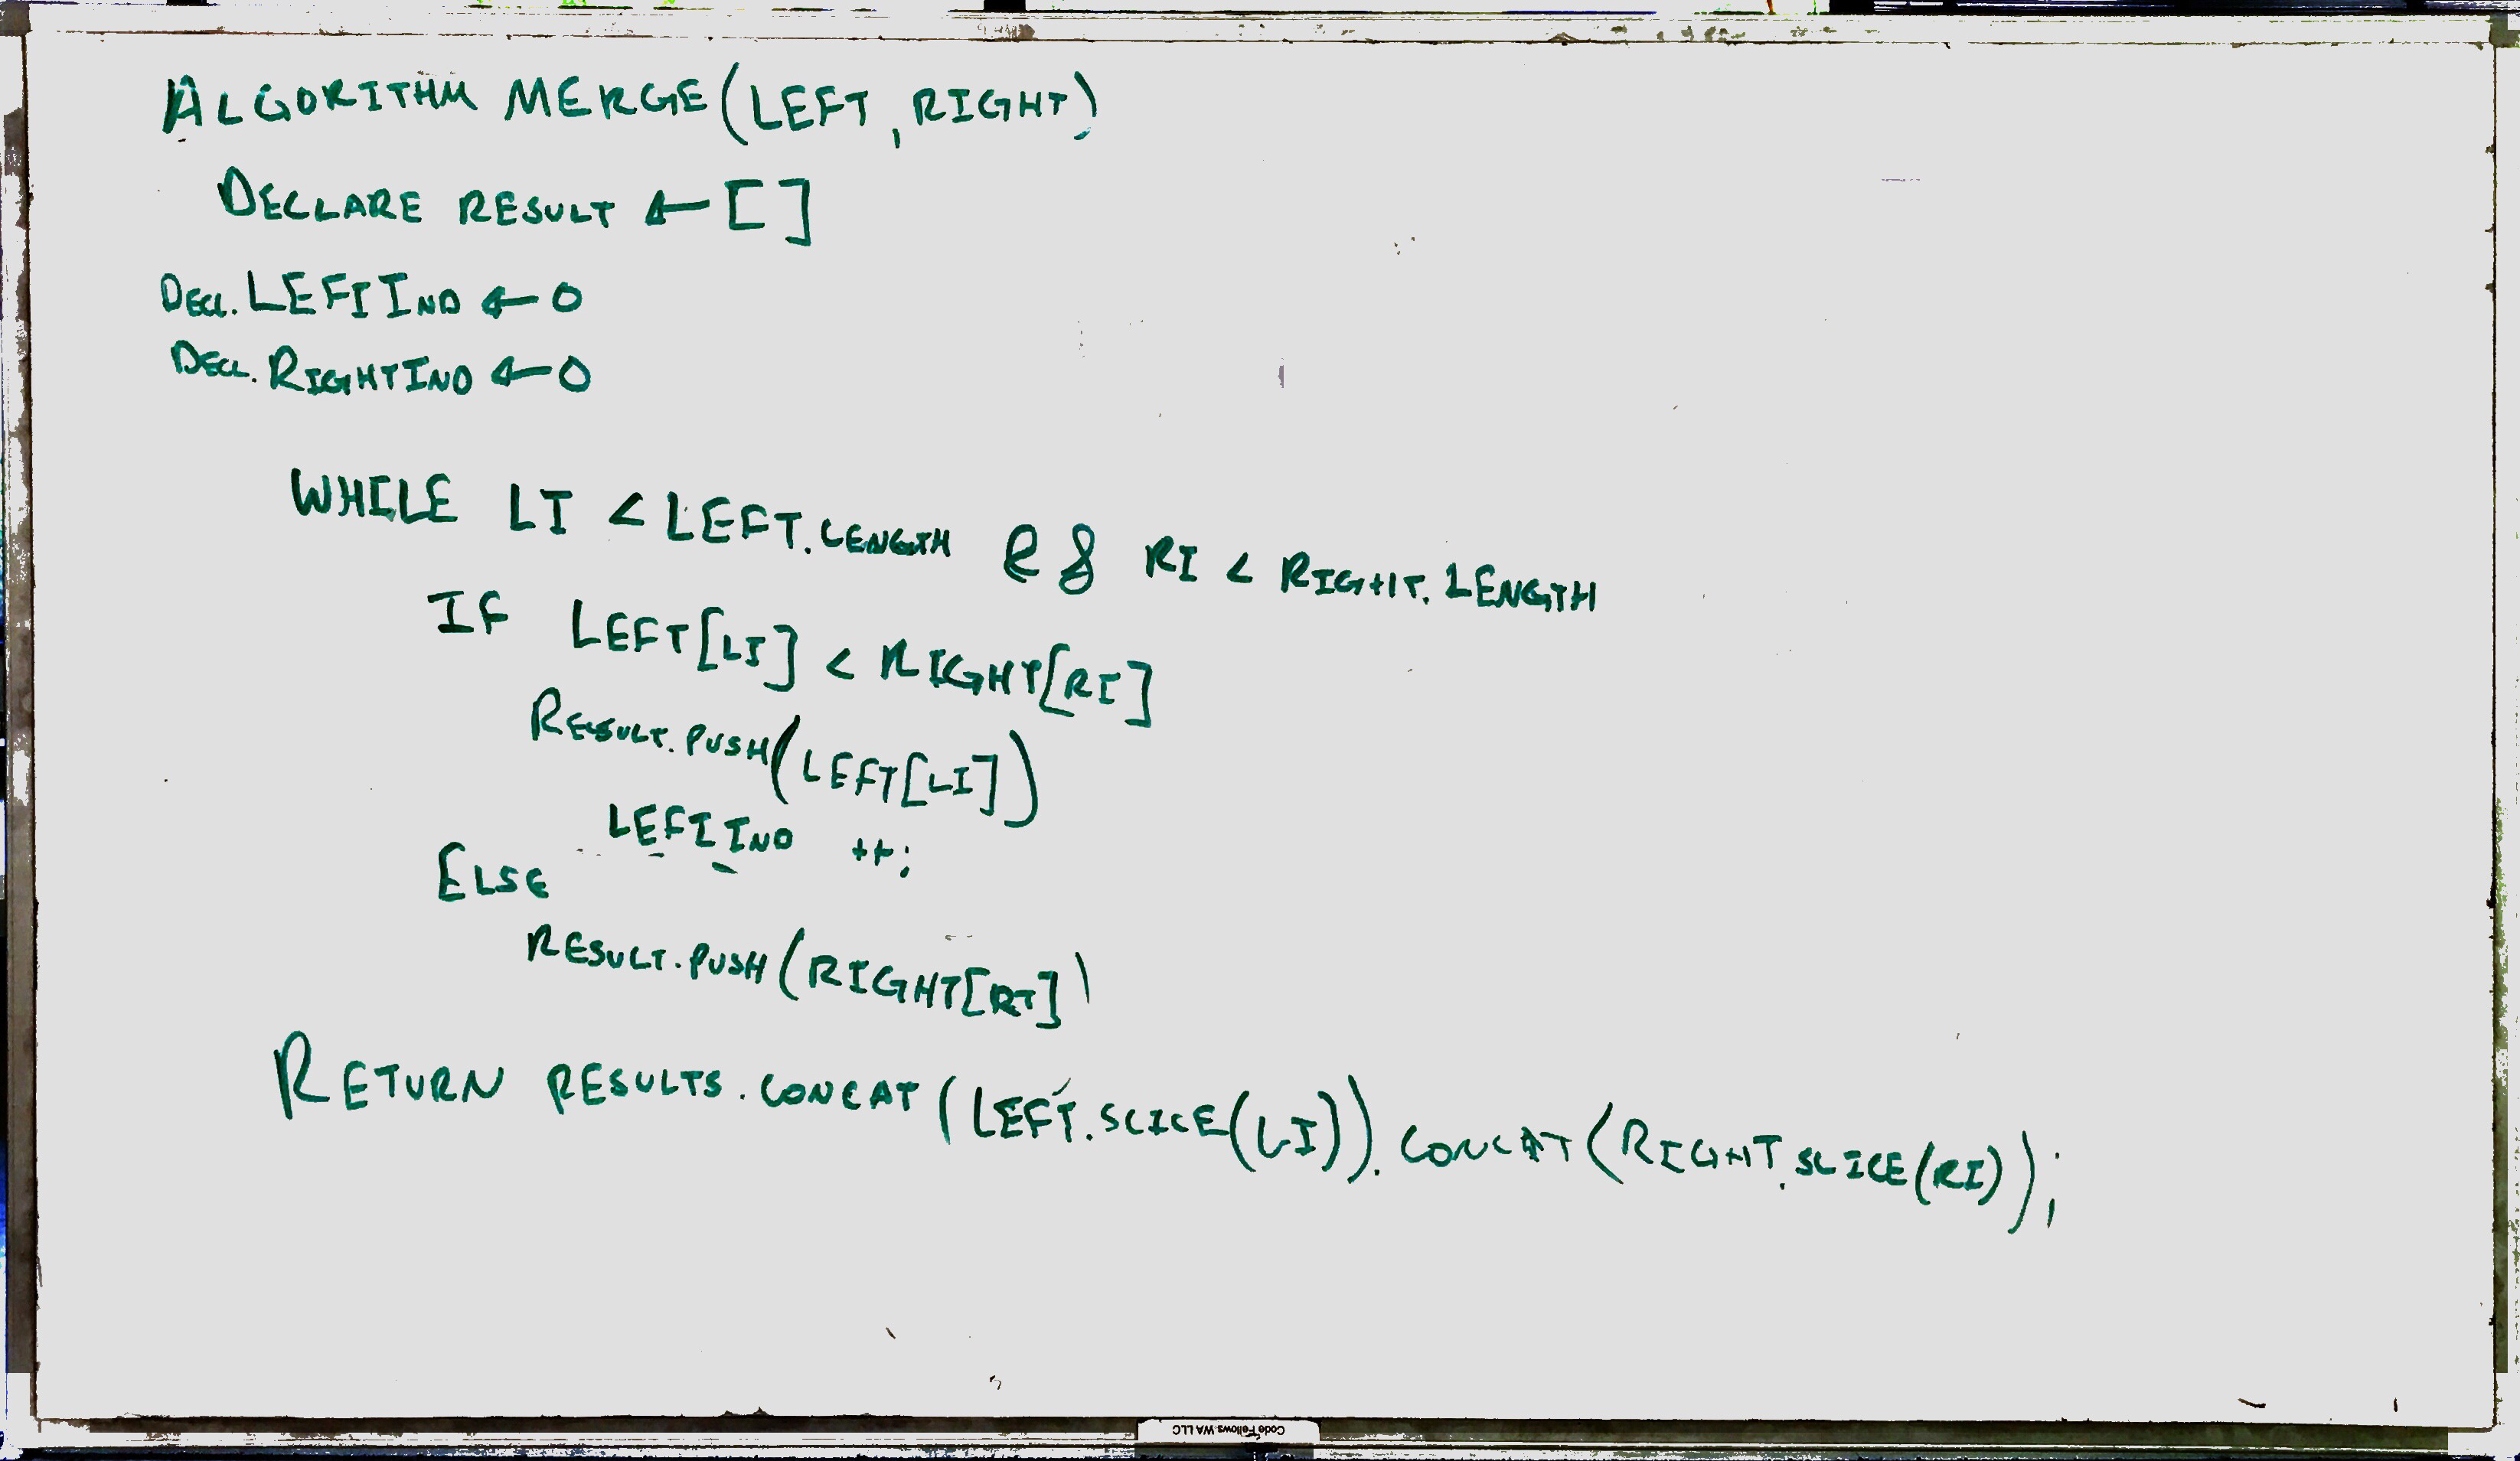 ALGORITHM MERGE(LEFT, RIGHT)
DECLARE RESULT ← []
DECL. LEFTIND ← 0
DECL. RIGHTIND ← 0
WHILE LI < LEFT.LENGTH && RI < RIGHT.LENGTH
IF LEFT[LI] < RIGHT[RI]
RESULT.PUSH(LEFT[LI])
LEFTIND ++;
ELSE
RESULT.PUSH(RIGHT[RI])
RETURN RESULTS.CONCAT(LEFT.SLICE(LI)).CONCAT(RIGHT.SLICE(RI));
Code Fellows WA LLC